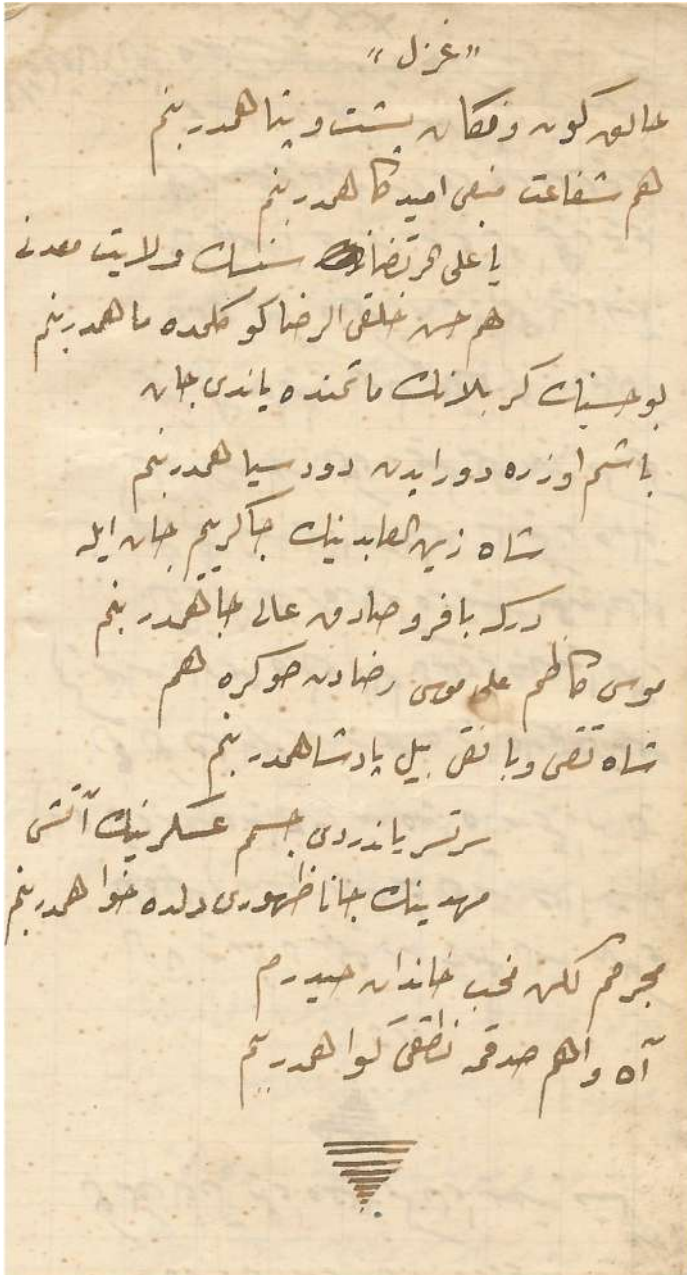 "غزل"
خالق كون و مكان پشت و پناهمدر بنم
هم شفاعت منبعی امیدكاهمدر بنم
یا علی المرتضا سنسك ولایت معدنی
هم حسن خلقی الرضا كوكلمده ماهمدر بنم
بو حسینك كربلانك ماتمنده یاندی جان
باشم اوزره دور ایدن دود سیاهمدر بنم
شاه زین العابدینك چاكریم جان ایله
دركه باقر و صادق عالی جاهمدر بنم
موسی كاظم علی موسی رضادن صوكره هم
شاه تقی و با نقی بیل پادشاهمدر بنم
سرتسر یاندردی جسمم عسكرینك آتشی
مهدینك جانا ظهوری دلده خواهمدر بنم
مجرمم لكن محب خاندان حیدرم
آه و اهم صدقمه نطقی كواهمدر بنم